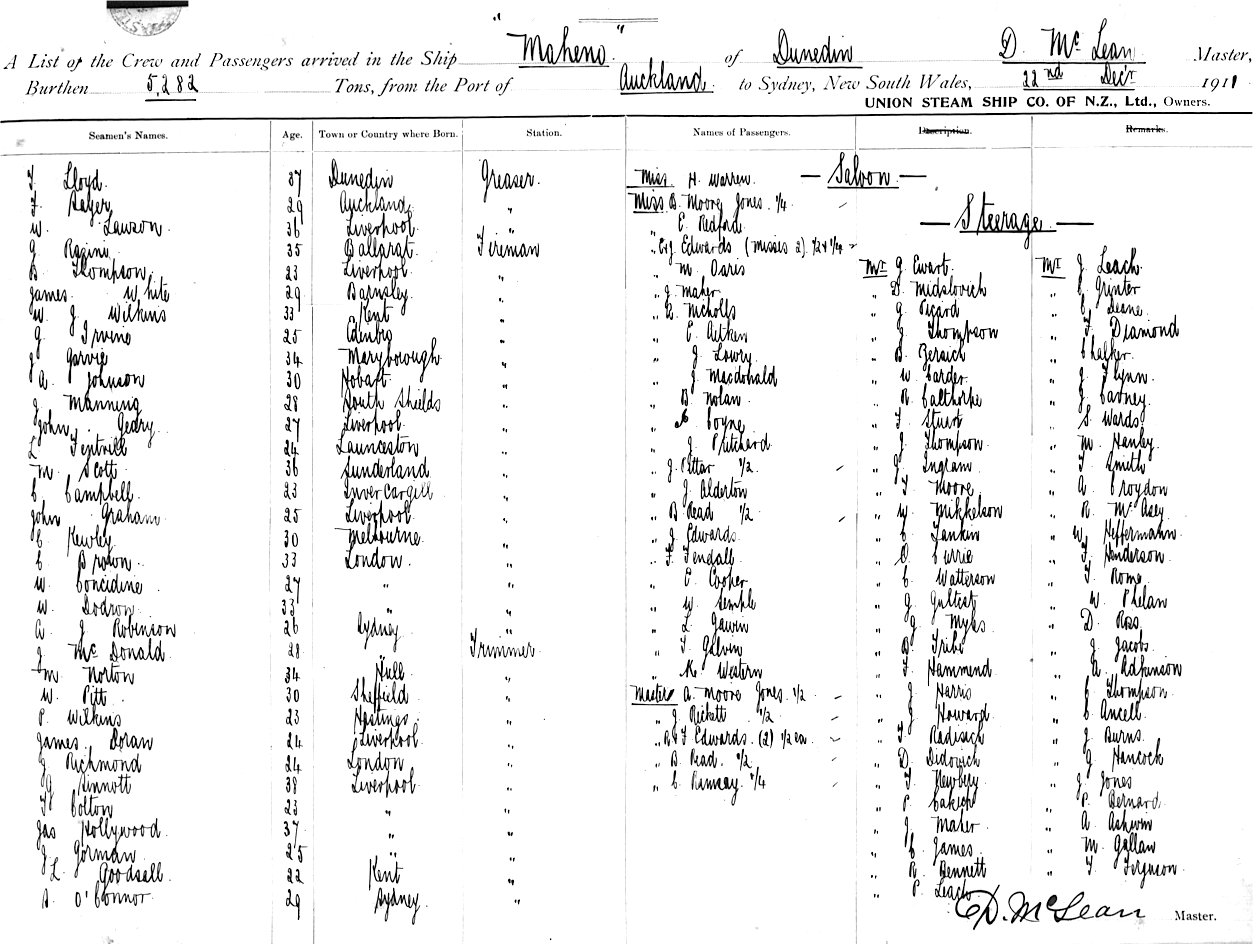 A List of the Crew and Passengers arrived in the Ship "Maheno" of Dunedin D. McLean Master,
Burthen 5,282 Tons, from the Port of Auckland to Sydney, New South Wales, 22nd Decr 1911
UNION STEAM SHIP CO. OF N.Z., Ltd., Owners.
Seamen's Names. Age. Town or Country where Born. Station. Names of Passengers. Description. Remarks.
T. Lloyd. 37 Dunedin Greaser.
F. Sayer 29 Auckland "
W. Lawson 36 Liverpool "
J. Racini 35 Ballarat Fireman
B. Thompson 23 Liverpool "
James White 29 Barnsley "
W. J. Wilkins 33 Kent "
G. Irvine 25 Edinbro "
J. Garvie 34 Maryborough "
A. Johnson 30 Hobart "
J. Manning 28 South Shields "
John Geary 27 Liverpool "
L. 24 Launceston "
M. Scott 36 Sunderland "
C. Campbell 23 Invercargill "
John Graham 25 Liverpool "
E. Kewley 30 Melbourne "
C. Brown 33 London "
W. Concidine 27 " "
W. Dodron 33 " "
A. J. Robinson 26 Sydney "
J. McDonald 28 " Trimmer
M. Norton 34 Hull "
W. Pitt 30 Sheffield "
P. Wilkins 23 Hastings "
James Doran 24 Liverpool "
J. Richmond 24 London "
G. Sinnott 38 Liverpool "
T. Colton 23 " "
Jas Hollywood 37 " "
J. Gorman 25 " "
L. Goodsell 22 Kent "
D. O'Connor 29 Sydney "
— Saloon —
Miss H. Warren
Miss B. Moore Jones 1/4
" E. Redford
" E & J. Edwards (Misses 2) 1/2 & 1/4
" M. Davis
" J. Maher
" L. Nicholls
" E. Aitken
" J. Lowry
" J. Macdonald
" B. Nolan
" C. Coyne
" J. Pritchard
" J. Pittar 1/2
" J. Alderton
" B. Read 1/2
" J. Edwards
" F. Fendall
" E. Cooper
" W. Semple
" L. Gawin
" T. Galvin
" K. Western
Master A. Moore Jones 1/2
" J. Rickett 1/2
" R & F Edwards. (2) 1/2 ea
" B. Read. 1/2
" C. Ramsay 1/4
— Steerage —
Mr G. Ewart
" D. Midslovich
" G. Picard
" J. Thompson
" B. Zersich
" W. Carder
" R. Calthorpe
" F. Stuart
" J. Thompson
" G. Ingram
" T. Moore
" W. Mikkelson
" C. Lankin
" O. Currie
" C. Watterson
" G.
" G. Myks
" B. Tribe
" F. Hammond
" J. Harris
" J. Howard
" T. Radisich
" D. Didovich
" T. Newbery
" P. Cakich
" J. Maher
" C. James
" R. Bennett
" P. Leach
Mr J. Leach
" E. Grinter
" C. Deane
" F. Diamond
" Chalker
" J. Flynn
" J. Carney
" S. Wards
" M. Hanley
" T. Smith
" A. Croydon
" R. McAsey
" W. Heffermann
" F. Henderson
" T. Rome
" W. Phelan
" D. Ross
" J. Jacobs
" A. Adkinson
" C. Thompson
" C. Ancell
" J. Burns
" G. Hancock
" J. Jones
" P. Bernard
" A. Ashwin
" M. Gallan
" T. Ferguson
D. McLean Master.